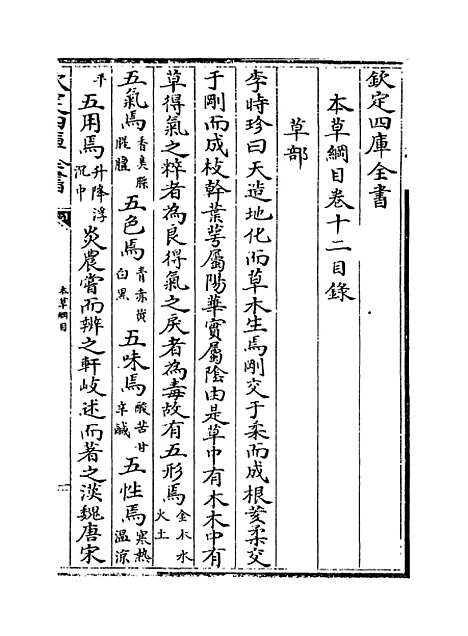 欽定四庫全書
本草綱目卷十二目錄
草部
李時珍曰天造地化而草木生焉剛交于柔而成根荄柔交
于剛而成枝幹葉萼屬陽華實屬陰由是草中有木木中有
草得氣之粹者為良得氣之戾者為毒故有五形焉金木水火土
五氣焉香臭臊腥膻五色焉青赤黃白黑五味焉酸苦甘辛鹹五性焉寒熱溫涼
平五用焉升降浮沉中炎農嘗而辨之軒岐述而著之漢魏唐宋
本草綱目